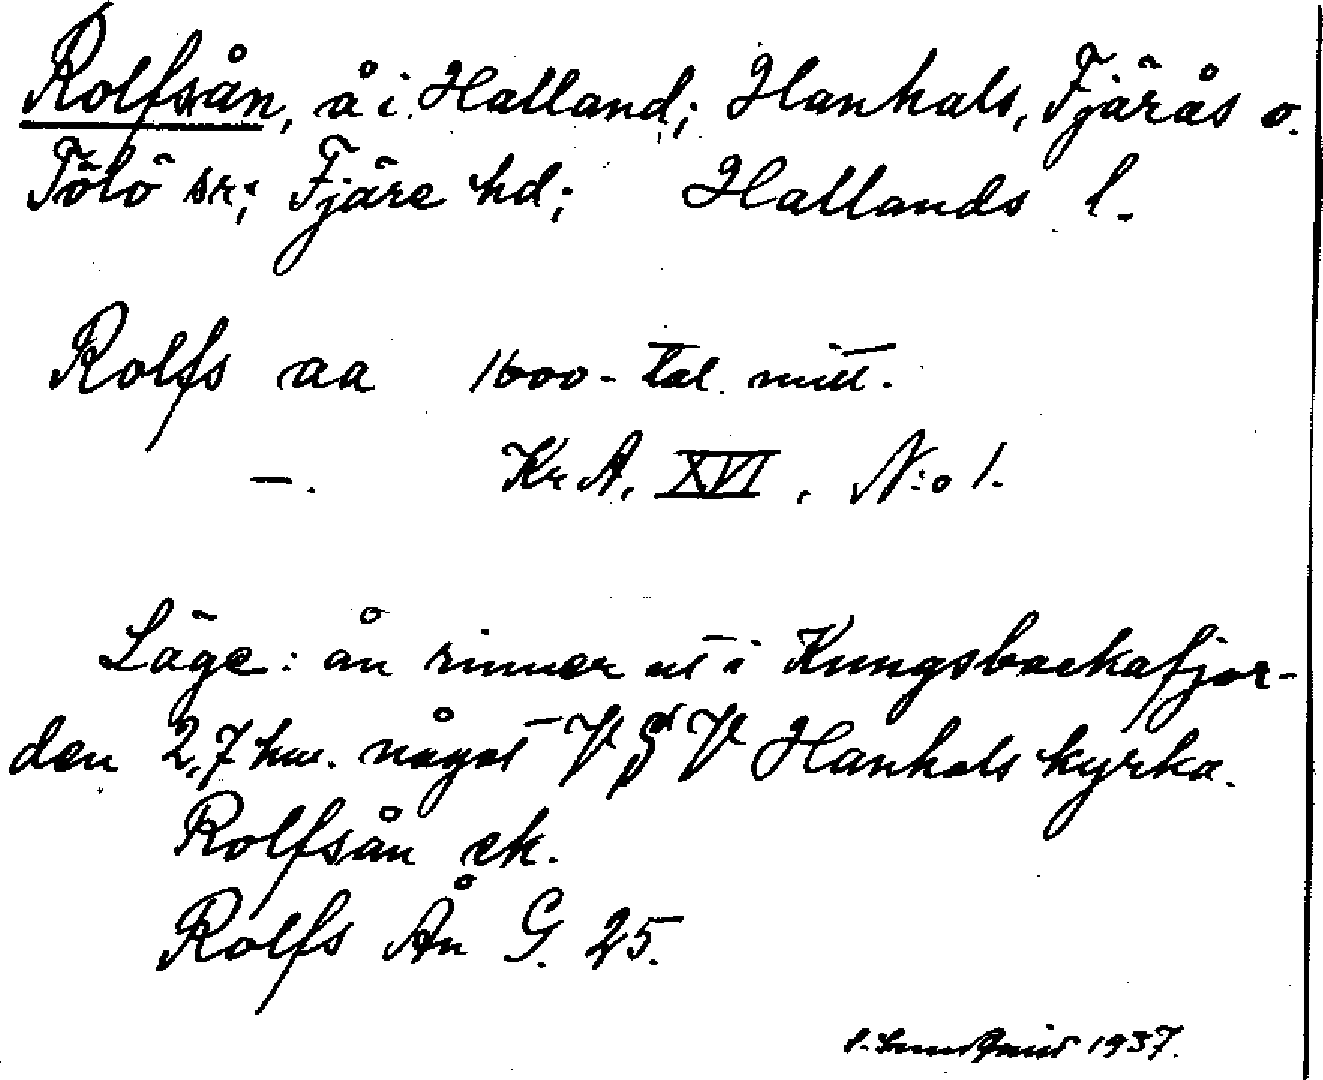 Rolfsån, å i Halland; Hanhals, Fjärås o.
Tölö sn; Fjäre hd; Hallands l.
Rolfs aa 1600-tal mitt.
—. KrA, XVI, N:o 1.
Läge: ån rinner ut i Kungsbackafjor-
den 2,7 km. något V Hanhals kyrka.
Rolfsån ek.
Rolfs Ån G. 25.
1937.